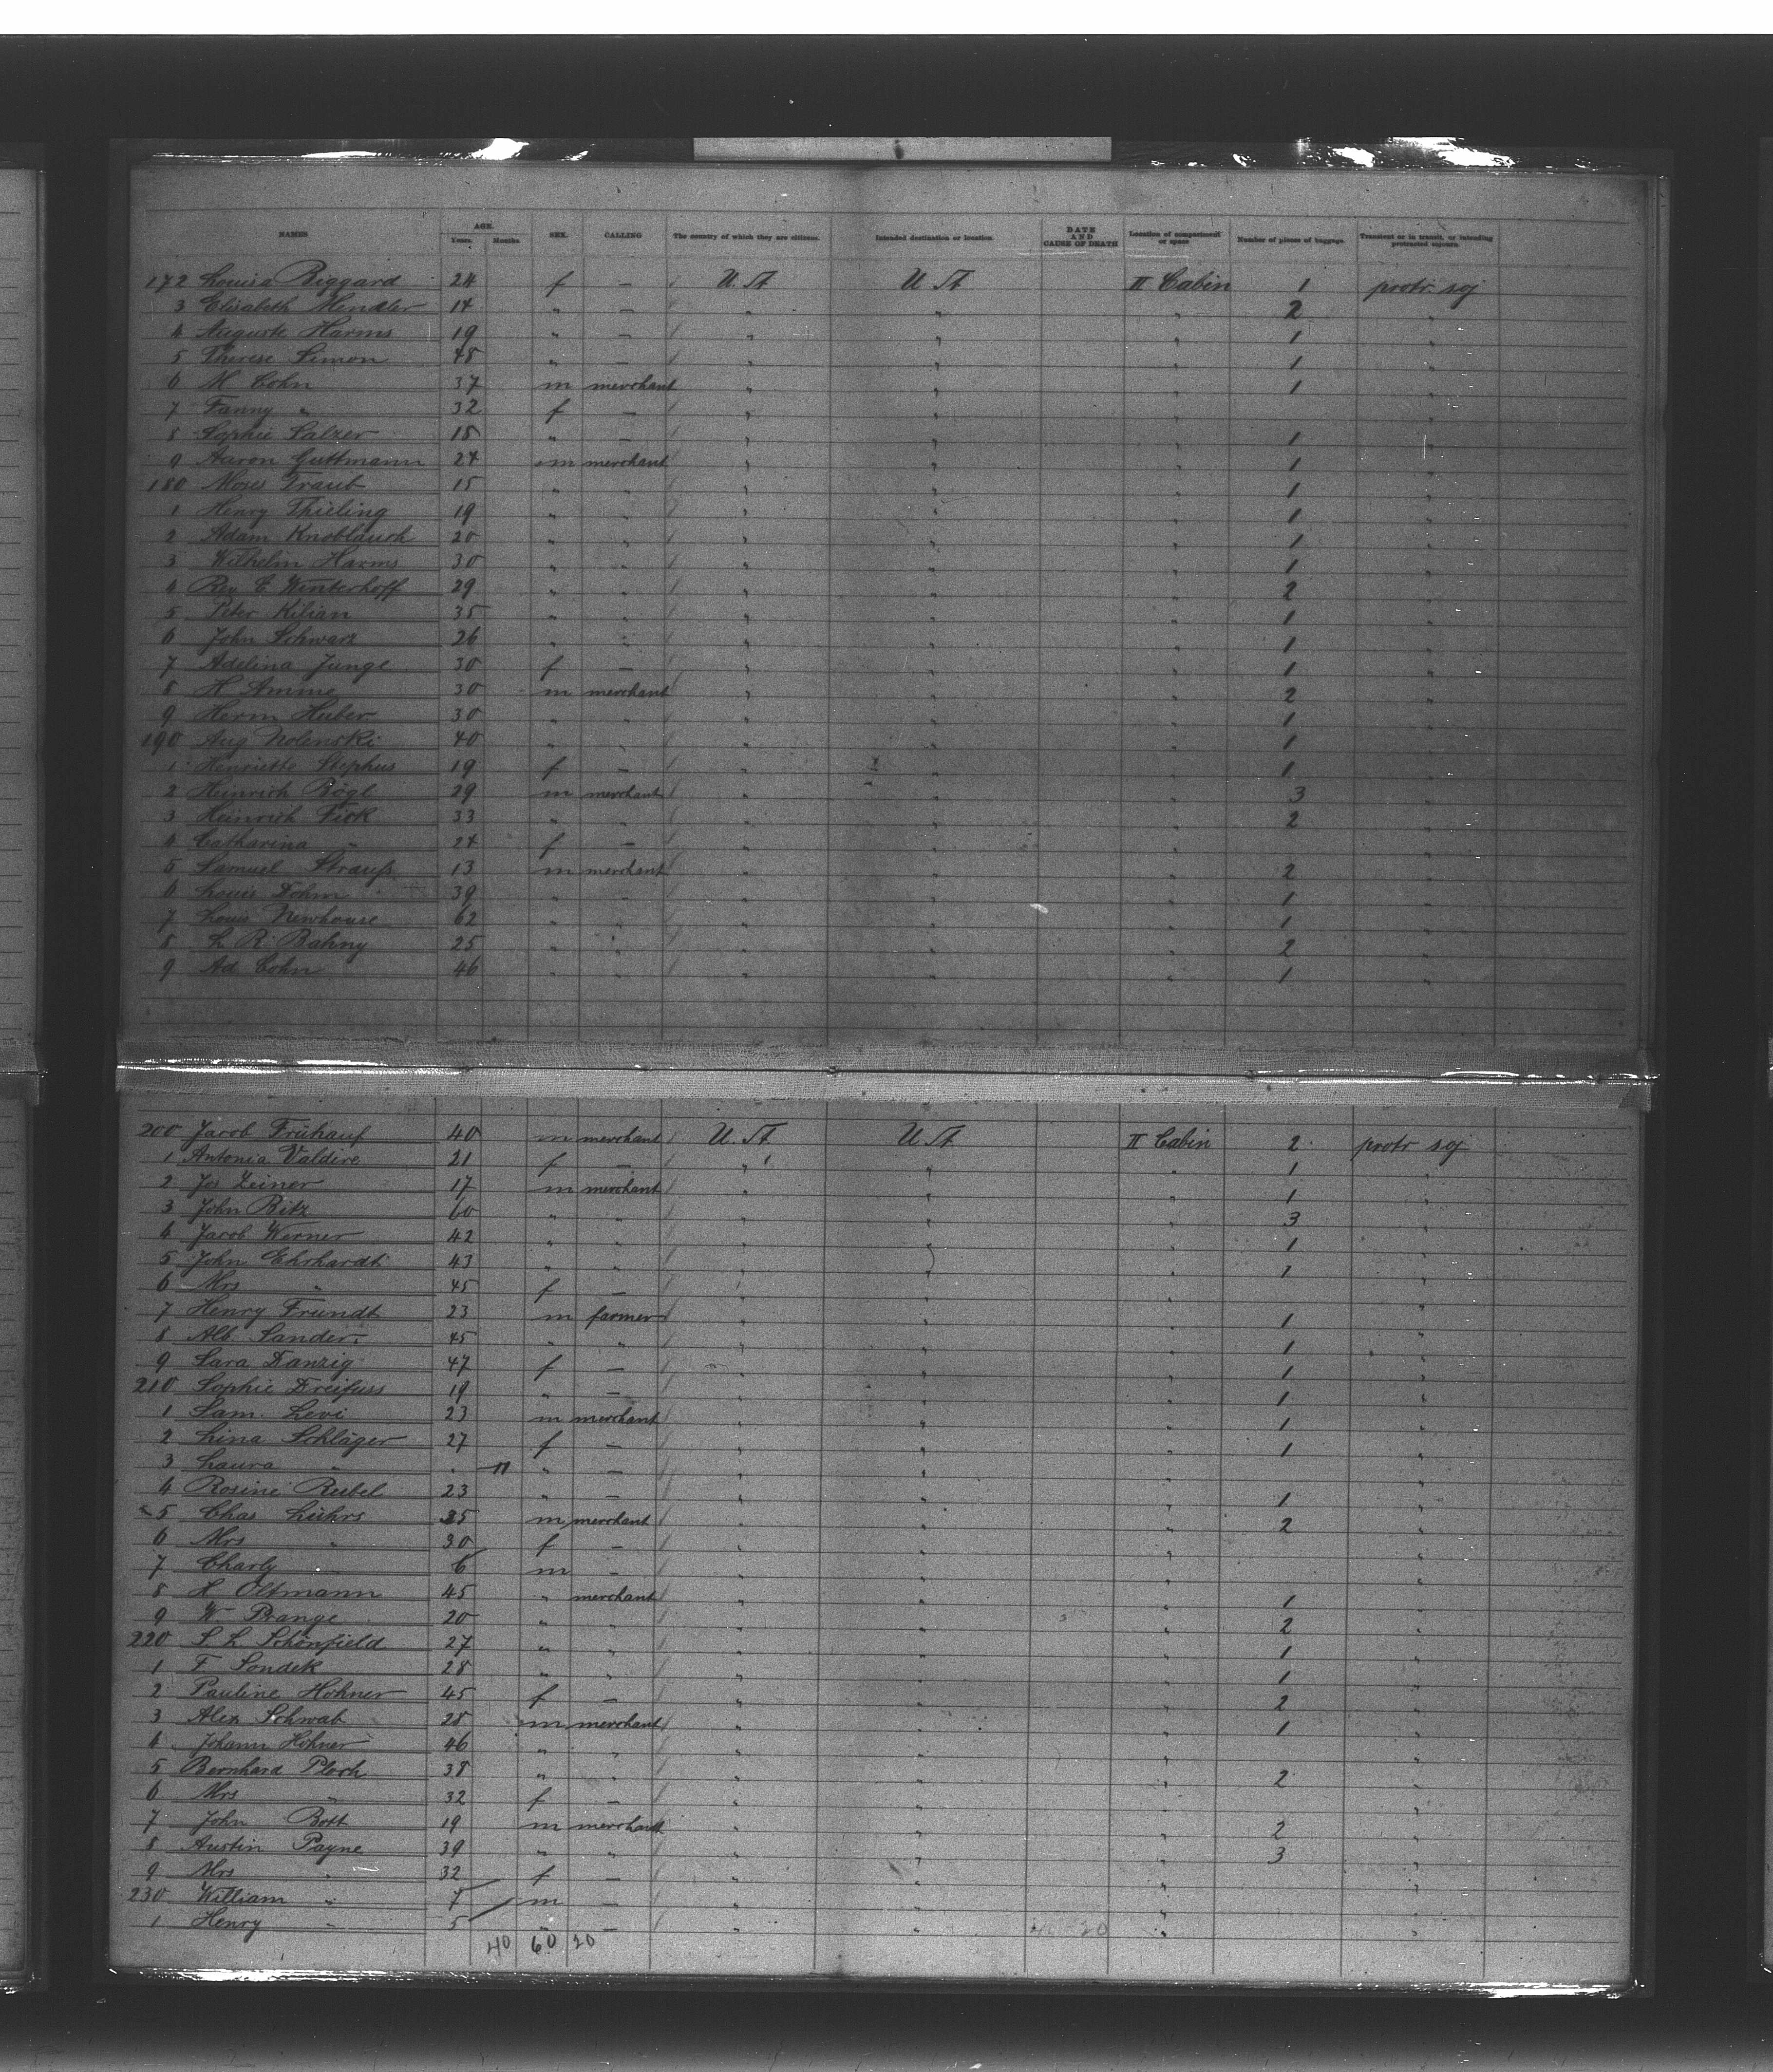 NAMES AGE. Years. Months. SEX. CALLING The country of which they are citizens. Intended destination or location. DATE AND CAUSE OF DEATH Location of compartment or space Number of pieces of baggage. Transient or in transit, or intending protracted sojourn.
172 Louisa Biggard 24 f — U. St U St II Cabin 1 protr. soj
3 Elisabeth Hendler 14 " — " " " 2 "
4 Auguste Harms 19 " — " " " 1 "
5 Therese Simon 48 " — " " " 1 "
6 M Cohn 37 m merchant " " " 1 "
7 Fanny " 32 f — " " " "
8 Sophie Salzer 18 " — " " " 1 "
9 Aaron Guttmann 24 m merchant " " " 1 "
180 Moses Traub 15 " " " " " 1 "
1 Henry Thieling 19 " " " " " 1 "
2 Adam Knoblauch 20 " " " " " 1 "
3 Wilhelm Harms 30 " " " " " 1 "
4 Rev E Winterhoff 29 " " " " " 2 "
5 Peter Kilian 35 " " " " " 1 "
6 John Schwarz 26 " " " " " 1 "
7 Adelina Junge 30 f — " " " 1 "
8 H Amme 30 m merchant " " " 2 "
9 Herm Huber 30 " " " " " 1 "
190 Aug Nolenski 40 " " " " " 1 "
1 Henriette Stephus 19 f — " " " 1 "
2 Heinrich Bögl 29 m merchant " " " 3 "
3 Heinrich Fick 33 " " " " " 2 "
4 Catharina " 24 f — " " " "
5 Samuel Strauss 13 m merchant " " " 2 "
6 Louis Dohm 39 " " " " " 1 "
7 Louis Newhouse 62 " " " " " 1 "
8 L R Bahny 25 " " " " " 2 "
9 Ad Cohn 46 " " " " " 1 "
200 Jacob Frühauf 40 m merchant U. St U St II Cabin 2 protr soj
1 Antonia Valdire 21 f — " " " 1 "
2 Jos Zeiner 17 m merchant " " " 1 "
3 John Bitz 60 " " " " " 3 "
4 Jacob Werner 42 " " " " " 1 "
5 John Ehrhardt 43 " " " " " 1 "
6 Mrs " 45 f — " " " "
7 Henry Frundt 23 m farmer " " " 1 "
8 Alb Sander 45 " " " " " 1 "
9 Sara Danzig 47 f — " " " 1 "
210 Sophie Dreifuss 19 " — " " " 1 "
1 Sam. Levi 23 m merchant " " " 1 "
2 Lina Schläger 27 f — " " " 1 "
3 Laura " " 11 " — " " " "
4 Rosine Rubel 23 " — " " " 1 "
5 Chas Lührs 35 m merchant " " " 2 "
6 Mrs " 30 f — " " " "
7 Charly " 6 m — " " " "
8 H Oltmann 45 " merchant " " " 1 "
9 W. Prange 20 " " " " " 2 "
220 S L Schönfield 27 " " " " " 1 "
1 F Sondek 28 " " " " " 1 "
2 Pauline Hohner 45 f — " " " 2 "
3 Alex Schwab 28 m merchant " " " 1 "
4 Johann Hohner 46 " " " " " "
5 Bernhard Ploch 38 " " " " " 2 "
6 Mrs " 32 f — " " " "
7 John Bott 19 m merchant " " " 2 "
8 Austin Payne 39 " " " " " 3 "
9 Mrs " 32 f — " " " "
230 William " 7 m — " " " "
1 Henry " 5 " — " " " "
40 60 20